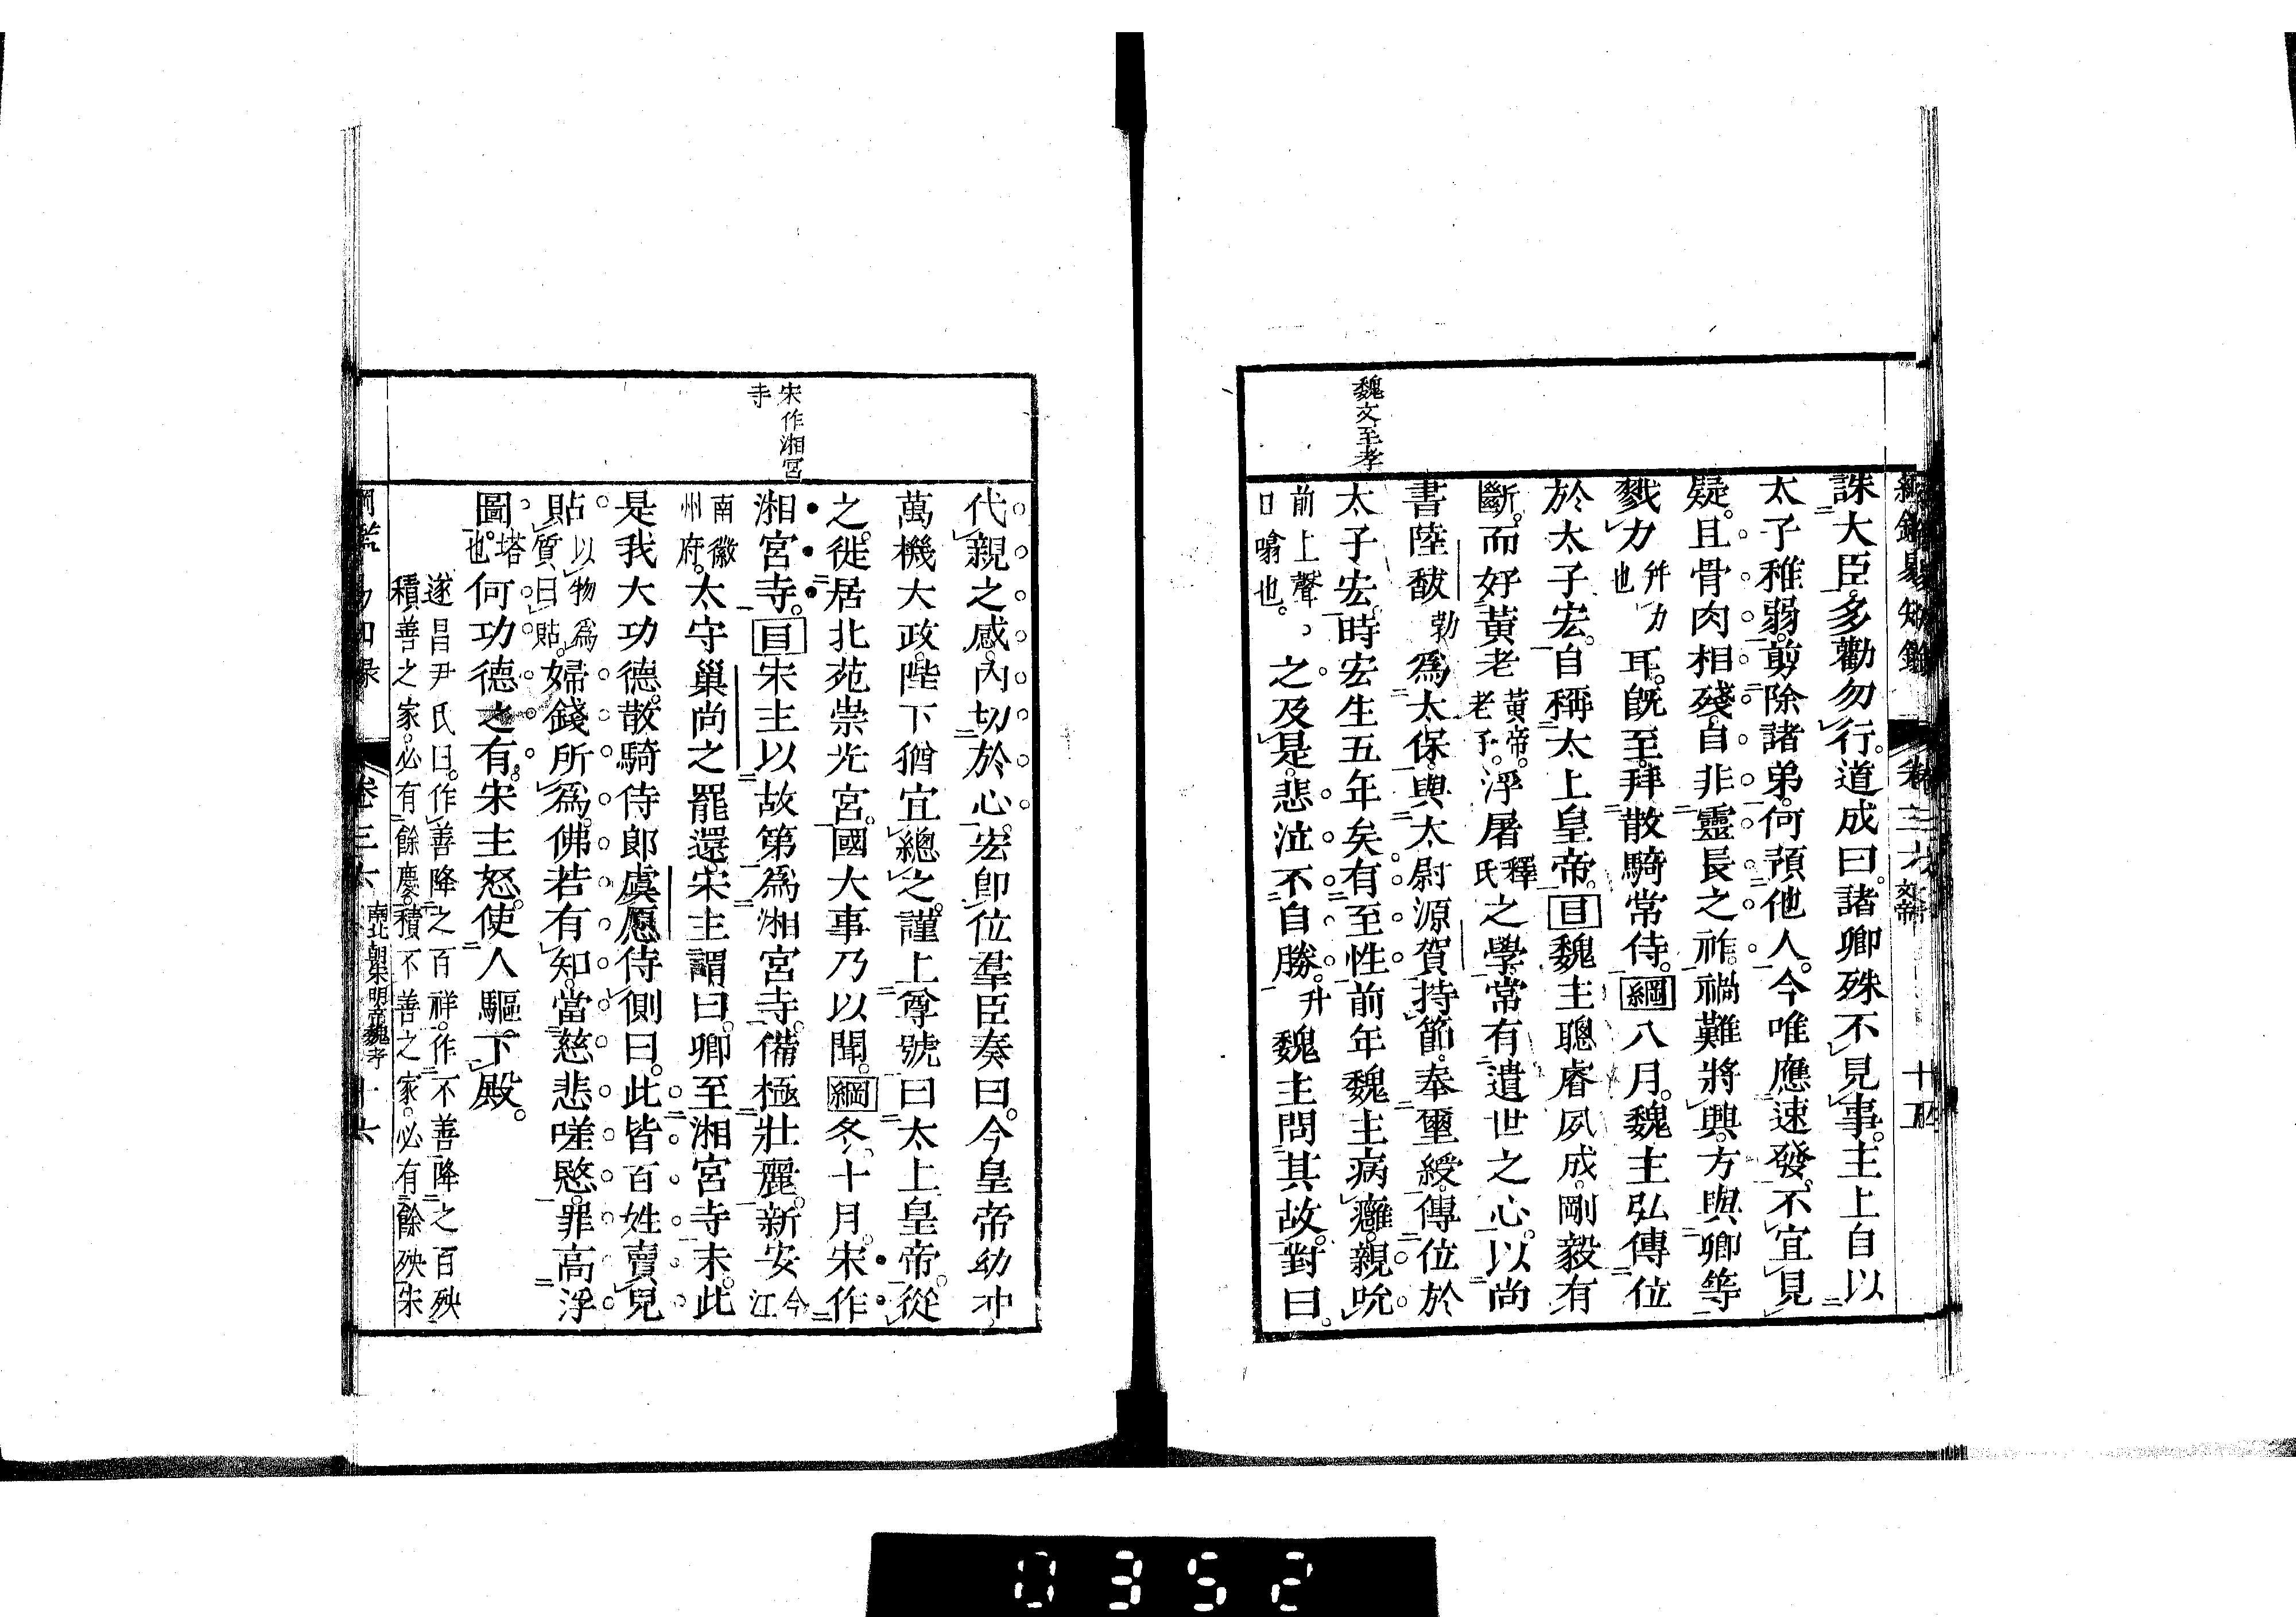 魏文至孝
誅大臣。多勸勿行。道成曰。諸卿殊不見事。主上自以
太子稚弱。剪除諸弟。何預他人。今唯應速發。不宜見
疑。且骨肉相殘。自非靈長之祚。禍難將興。方與卿等
戮力幷力也耳。旣至。拜散騎常侍。綱八月。魏主弘傳位
於太子宏。自稱太上皇帝。目魏主聰睿夙成。剛毅有
斷。而好黃老黃帝。老子。浮屠釋氏之學。常有遺世之心。以尚
書陸馛勃爲太保。與太尉源賀持節。奉璽綬。傳位於
太子宏。時宏生五年矣。有至性。前年魏主病癰。親吮
前上聲。口噏也。之。及是。悲泣不自勝。升魏主問其故。對曰。
宋作湘宮寺
代親之感。內切於心。宏卽位。羣臣奏曰。今皇帝幼冲。
萬機大政。陛下猶宜總之。謹上尊號曰太上皇帝。從
之。徙居北苑崇光宮。國大事乃以聞。綱冬、十月。宋作
湘宮寺。目宋主以故第爲湘宮寺。備極壯麗。新安今江
南徽州府。太守巢尚之罷還。宋主謂曰。卿至湘宮寺未。此
是我大功德。散騎侍郎虞愿侍側曰。此皆百姓賣兒
貼以物爲質曰貼。婦錢所爲。佛若有知。當慈悲嗟愍。罪高浮
圖塔也。何功德之有。宋主怒。使人驅下殿。
遂昌尹氏曰。作善降之百祥。作不善降之百殃。
積善之家。必有餘慶。積不善之家。必有餘殃。宋
卷三六 南北朝宋明帝魏孝 十六
0352